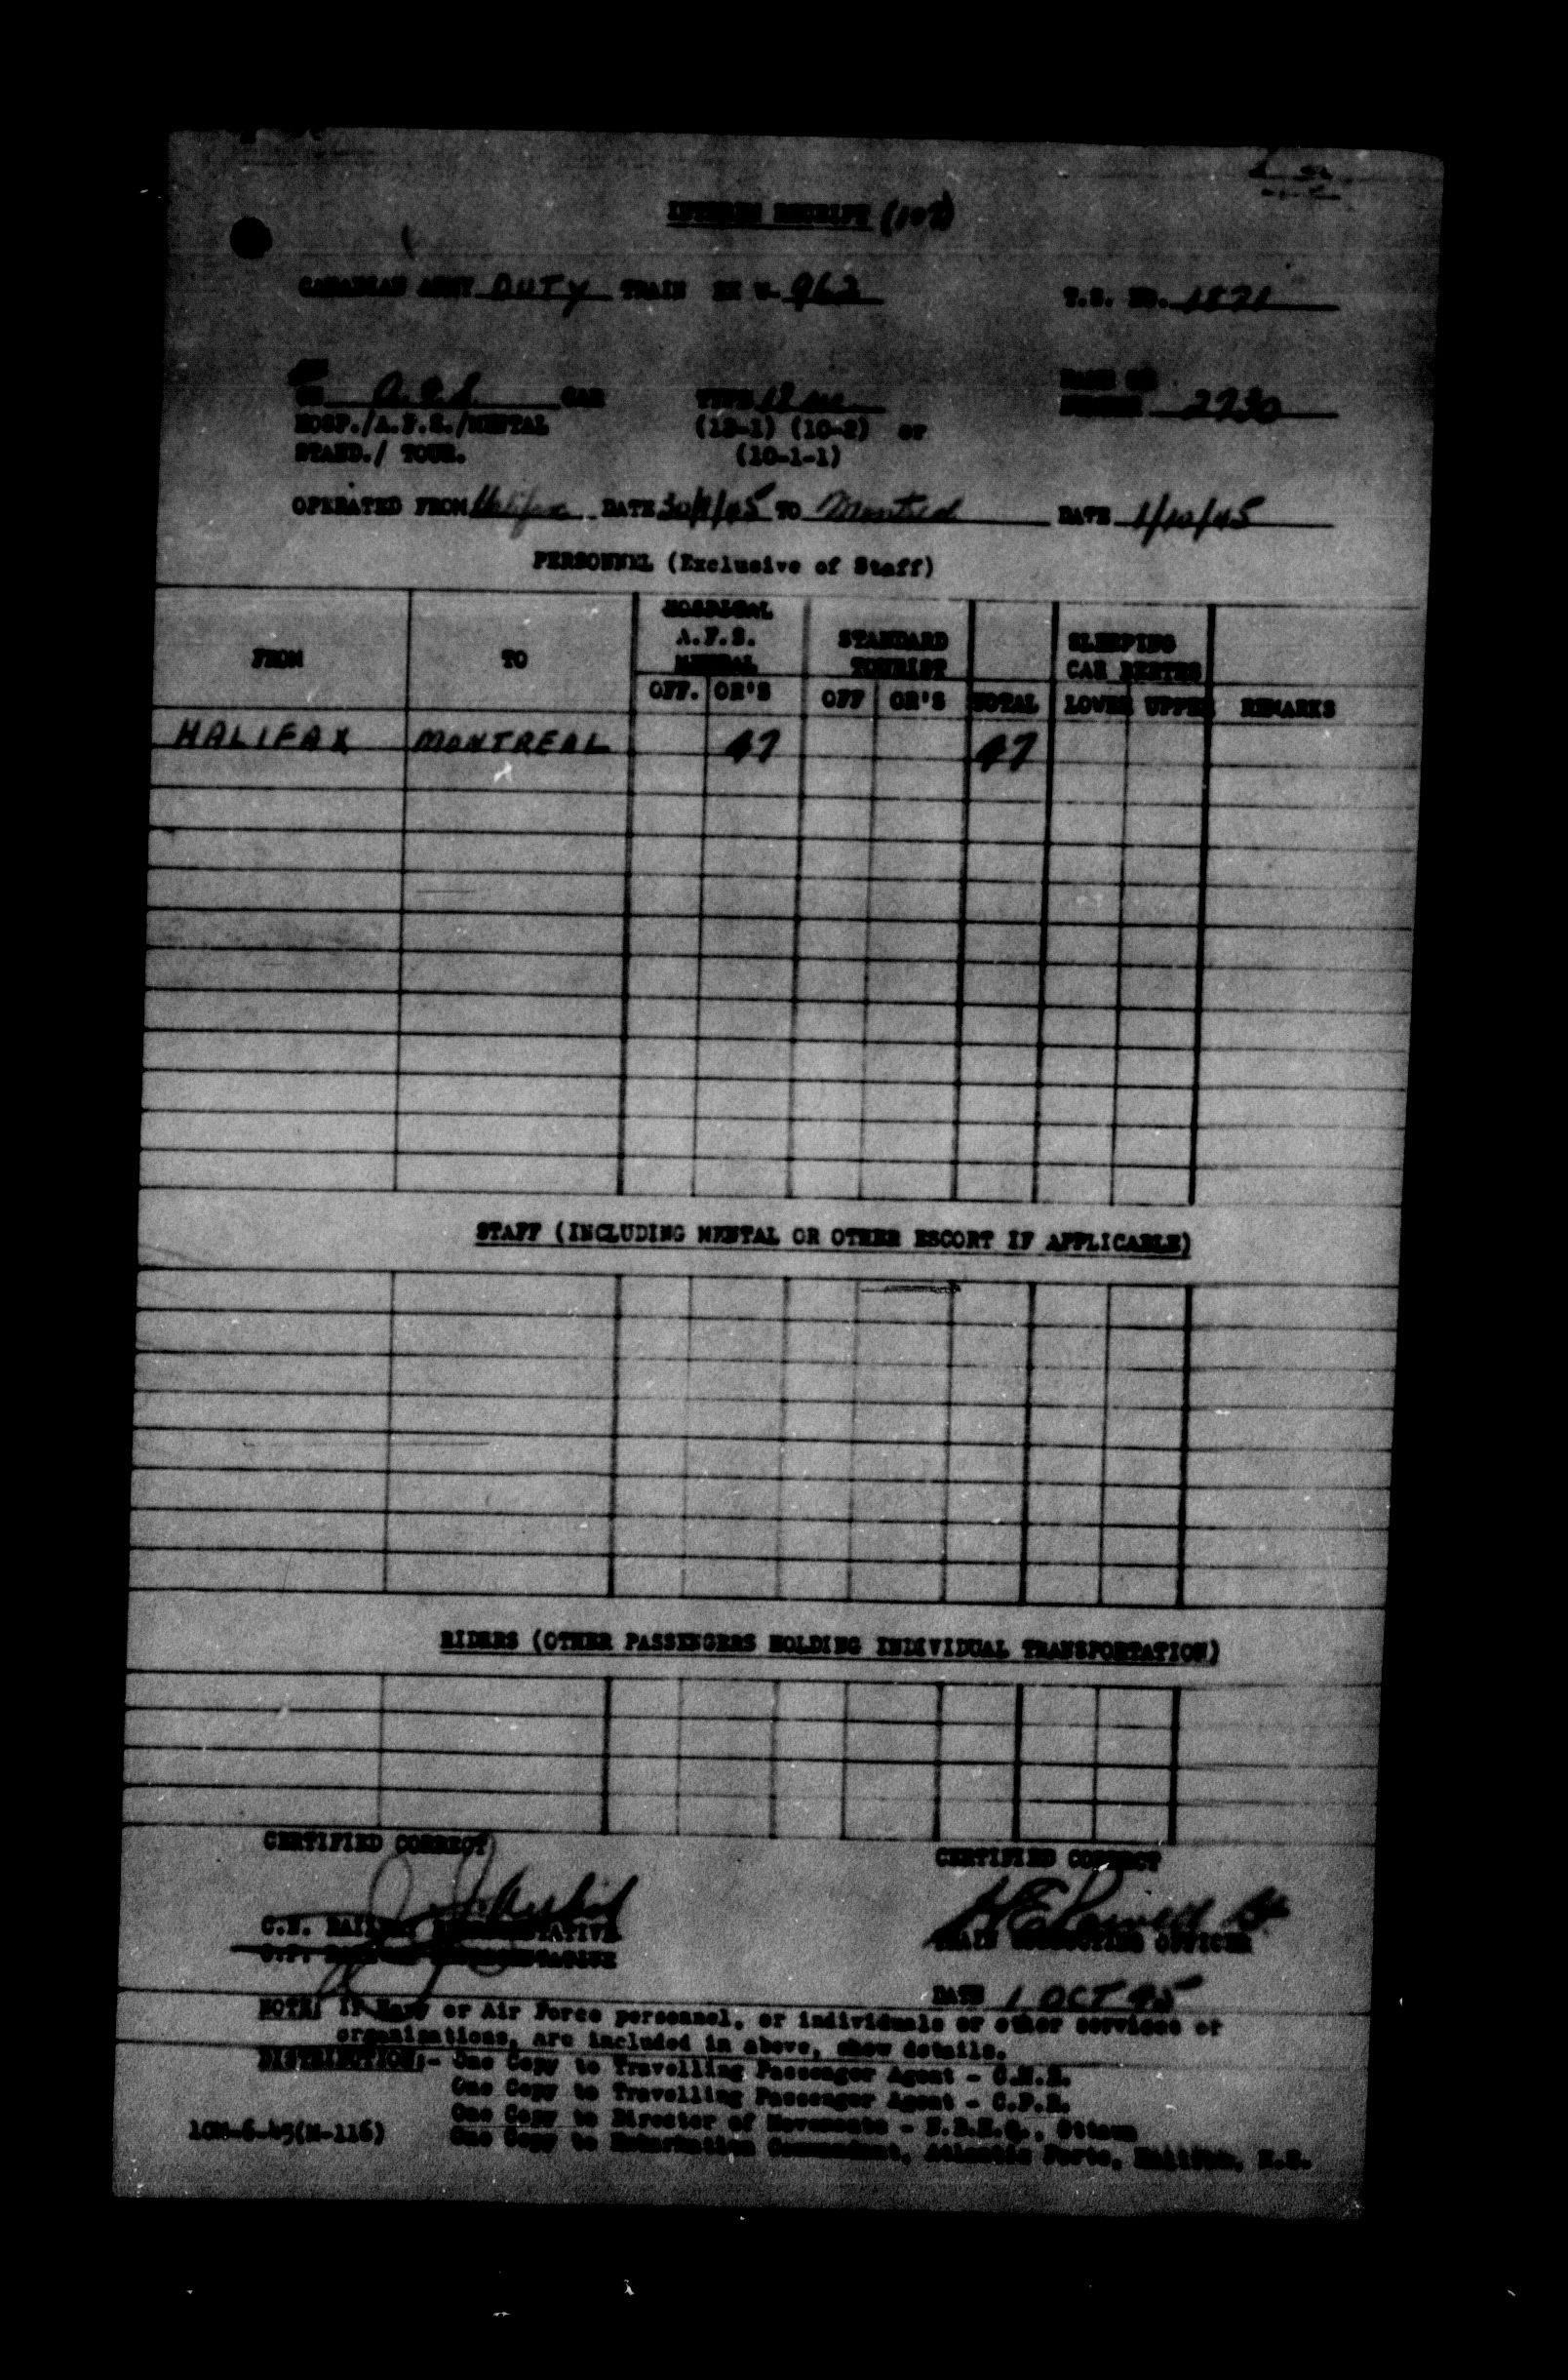 INTERIM RECEIPT (107)
CANADIAN ARMY DUTY TRAIN EX W- 962 T.S. NO. 1871
CAR TYPE NUMBER 2730
HOSP./A.F.S./MENTAL (12-1) (10-2) or
STAND./ TOUR. (10-1-1)
OPERATED FROM Halifax DATE 30/9/45 TO Montreal DATE 1/10/45
PERSONNEL (Exclusive of Staff)
FROM TO HOSPITAL A.F.S. MENTAL STANDARD TOURIST TOTAL SLEEPING CAR BERTHS REMARKS
OFF. OR'S OFF OR'S LOWER UPPER
HALIFAX MONTREAL 47 47
STAFF (INCLUDING MENTAL OR OTHER ESCORT IF APPLICABLE)
RIDERS (OTHER PASSENGERS HOLDING INDIVIDUAL TRANSPORTATION)
CERTIFIED CORRECT CERTIFIED CORRECT
C.N. RAILWAY REPRESENTATIVE TRAIN CONDUCTING OFFICER
C.P. RAILWAY REPRESENTATIVE
DATE 1 OCT 45
NOTE: If Navy or Air Force personnel, or individuals of other services or
organizations, are included in above, show details.
DISTRIBUTION:- One Copy to Travelling Passenger Agent - C.N.R.
One Copy to Travelling Passenger Agent - C.P.R.
One Copy to Director of Movements - N.D.H.Q., Ottawa
10M-6-45(M-116) One Copy to Embarkation Commandant, Atlantic Ports, Halifax, N.S.